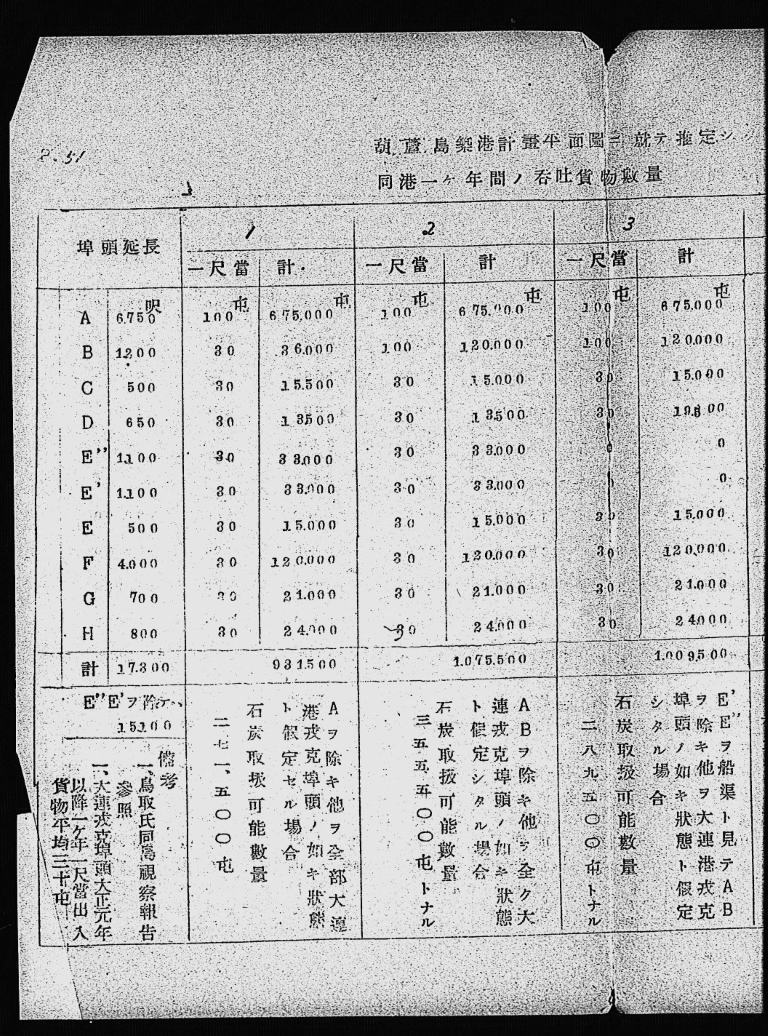 P. 51
葫蘆島築港計畫平面圖ニ就テ推定シ
同港一ケ年間ノ呑吐貨物數量
埠頭延長 1 2 3
一尺當 計 一尺當 計 一尺當 計
呎 屯 屯 屯 屯 屯 屯
A 6.750 100 675.000 100 675.000 100 675.000
B 1.200 30 36.000 100 120.000 100 120.000
C 500 30 15.500 30 15.000 30 15.000
D 650 30 13500 30 13500 30
E'' 1.100 30 33.000 30 33.000 0 0
E' 1.100 30 33.000 30 33.000 0 0
E 500 30 15.000 30 15.000 30 15.000
F 4.000 30 120.000 30 120.000 30 120.000
G 700 30 21.000 30 21.000 30 21.000
H 800 30 24.000 30 24.000 30 24000
計 17.300 931500 1.075.500 1.009.500
E''E'ヲ除テハ
15.100
Aヲ除キ他ヲ全部大連
港戎克埠頭ノ如キ狀態
ト假定セル場合
石炭取扱可能數量
二七一、五〇〇屯
ABヲ除キ他ヲ全ク大
連戎克埠頭ノ如キ狀態
ト假定シタル場合
石炭取扱可能數量
三五五五〇〇屯トナル
E'E''ヲ船渠ト見テAB
ヲ除キ他ヲ大連港戎克
埠頭ノ如キ狀態ト假定
シタル場合
石炭取扱可能數量
二八九五〇〇屯トナル
備考
一、鳥取氏同島視察報告
參照
一、大連戎克埠頭大正元年
以降一ケ年一尺當出入
貨物平均三十屯